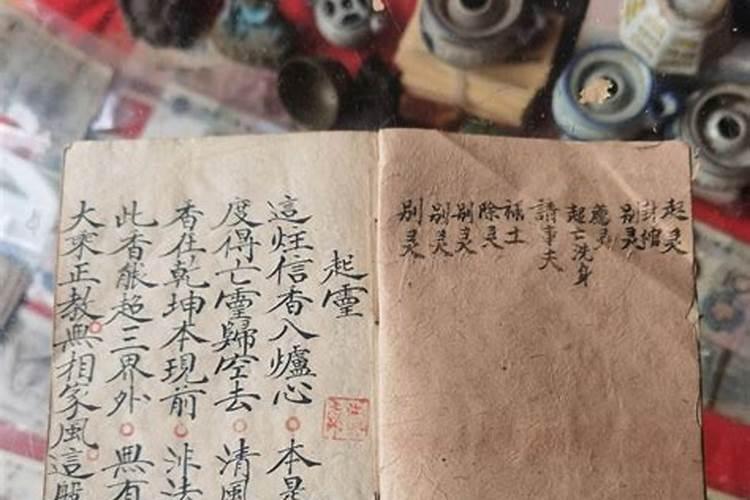 起灵
封棺
别灵
起亡洗身
請事夫
禄土
除灵
别灵
别灵
别灵
起靈
這炷信香入爐心 本是
度得亡靈歸空去 清風
香在乾坤本現前 非法
此香能超三界外 無有
大乘正教無相家風這股